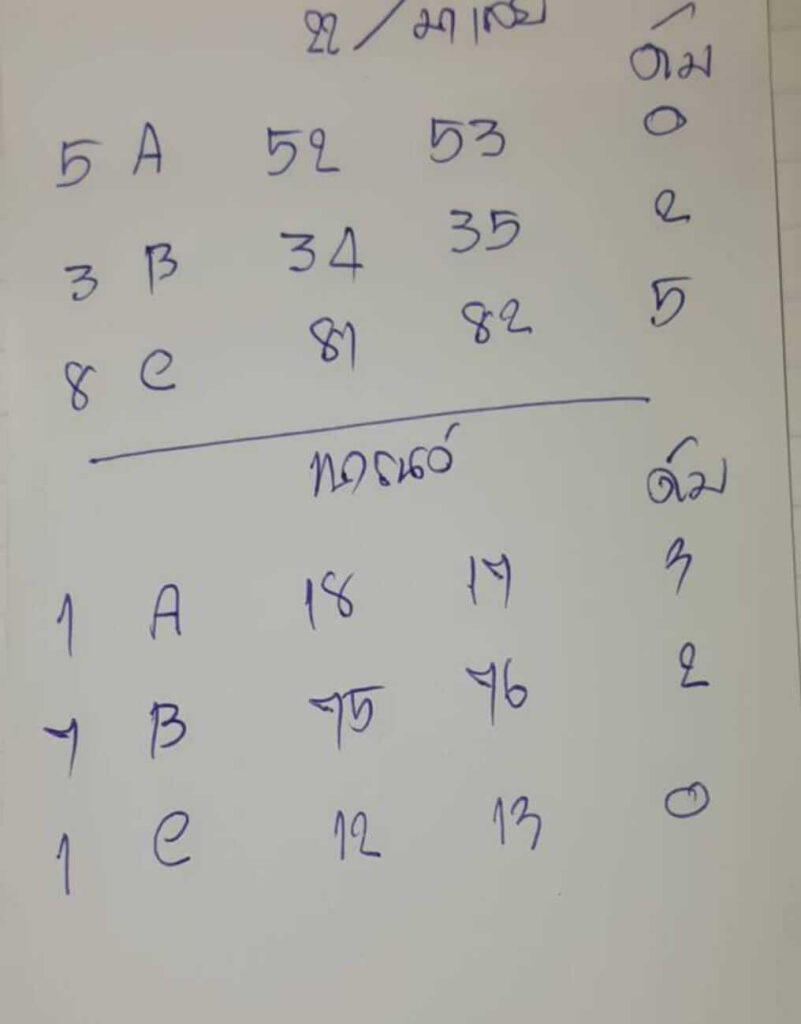 22 / มาเลย์
ดับ
5 A 52 53 0
3 B 34 35 2
8 C 81 82 5
ดับ
1 A 18 17 3
7 B 75 76 2
1 C 12 13 0